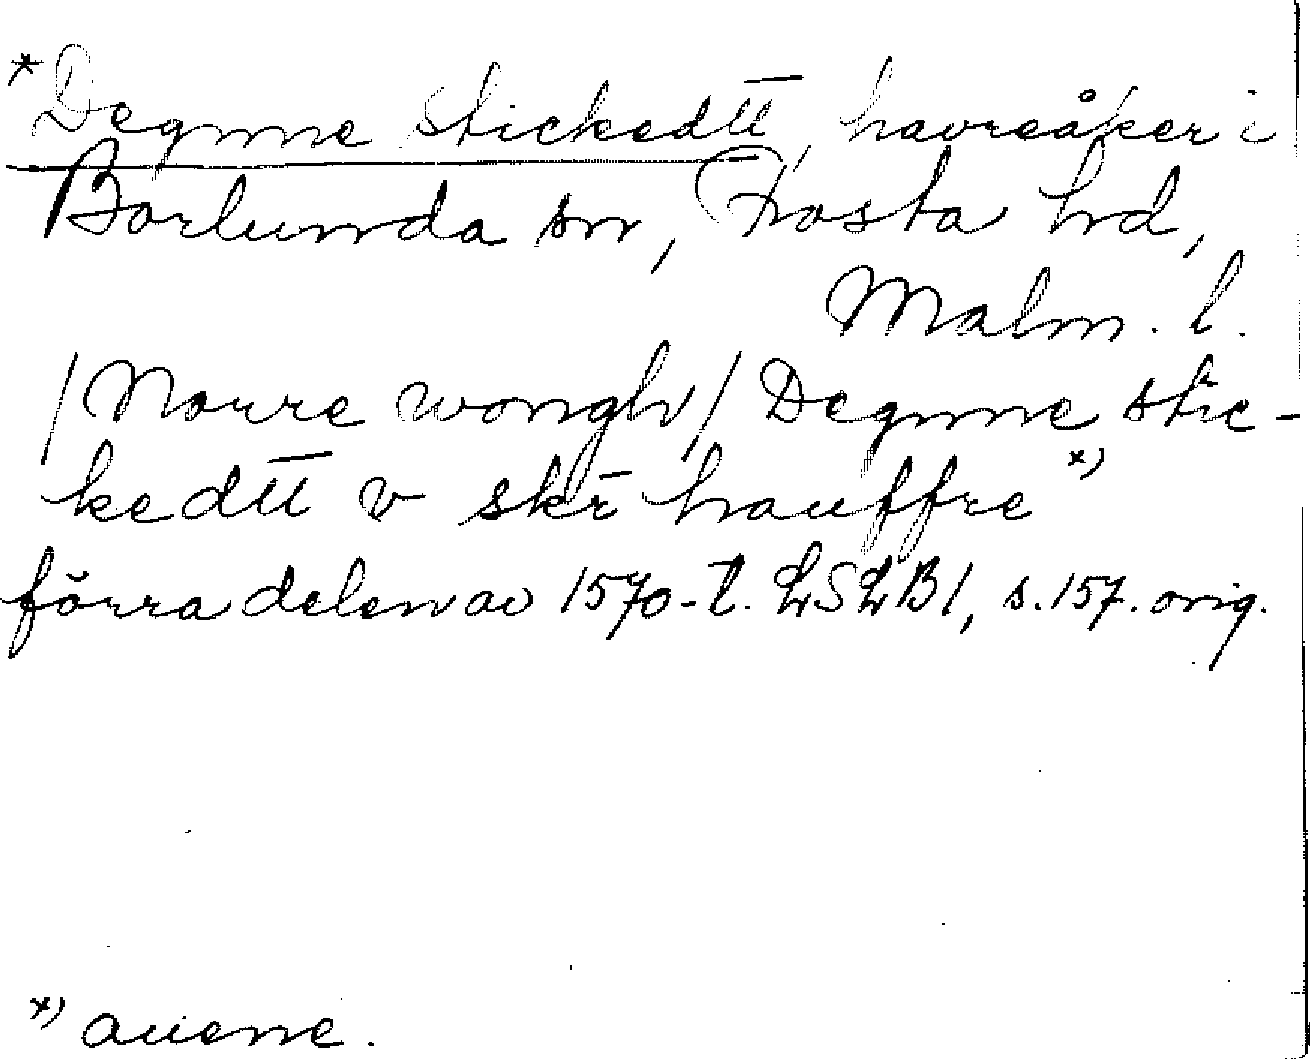 *Degnne stickedtt, havreåker i
Borlunda sn, Frosta hd,
Malm. l.
/Norre wongh/ Degnne stic-
kedtt v skr hauffre x)
förra delen av 1570-t. LSLB1, s.157. orig.
x) auene.